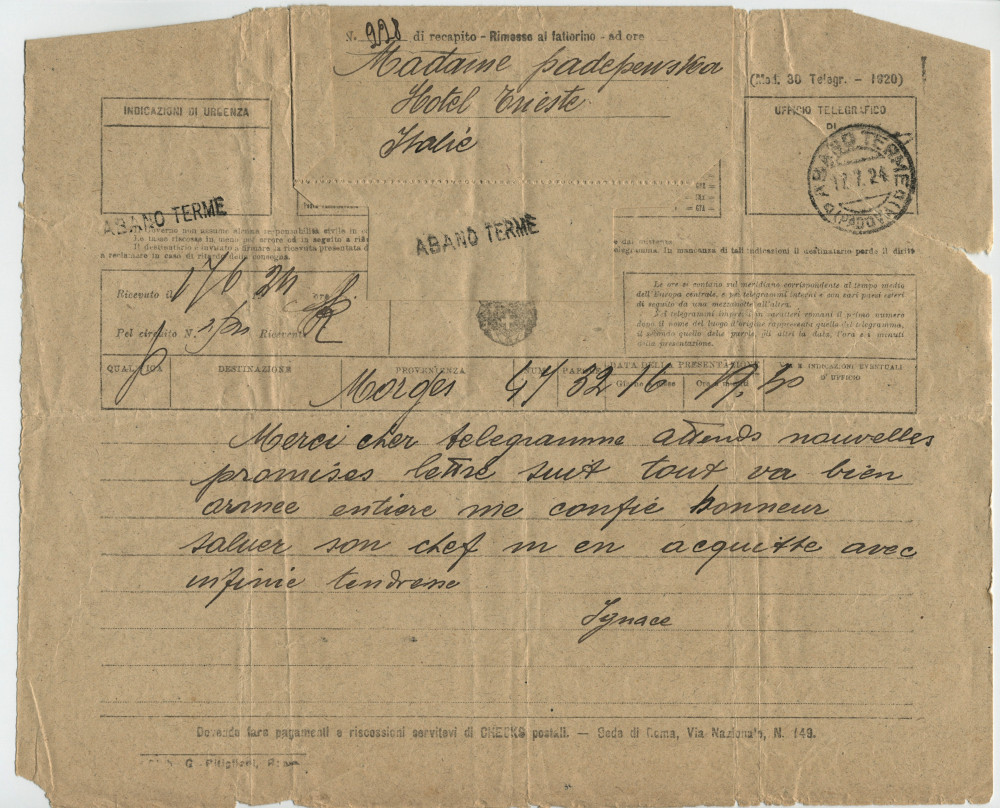 N. 228 di recapito - Rimesso al fattorino - ad ore
Madame padepewska
Hotel Trieste
Italie
(Mod. 30 Telegr. - 1920)
INDICAZIONI DI URGENZA
UFFICIO TELEGRAFICO
DI
ABANO TERME
17.7.24
(PADOVA)
ABANO TERME
ABANO TERME
Il destinatario è invitato a firmare la ricevuta presentata
a reclamare in caso di ritardo della consegna.
telegramma. In mancanza di tali indicazioni il destinatario perde il diritto
Le ore si contano sul meridiano corrispondente al tempo medio
dell'Europa centrale, e pei telegrammi interni e con vari paesi esteri
di seguito da una mezzanotte all'altra.
Nei telegrammi impressi in caratteri romani il primo numero
dopo il nome del luogo d'origine rappresenta quello del telegramma,
il secondo quello delle parole, gli altri la data, l'ora e i minuti
della presentazione.
Ricevuto il 17/6 24 ore
Pel circuito N. Ricevente
QUALIFICA DESTINAZIONE PROVENIENZA NUM. PAROLE DATA DELLA PRESENTAZIONE VIA E INDICAZIONI EVENTUALI
Giorno e mese Ore e minuti D'UFFICIO
Morges 47 32 16
Merci cher telegramme attends nouvelles
promises lettre suit tout va bien
armee entiere me confie honneur
saluer son chef m en acquitte avec
infinie tendresse
Ignace
Dovendo fare pagamenti e riscossioni servitevi di CHECKS postali. — Sede di Roma, Via Nazionale, N. 149.
G. Pitigliani, Roma